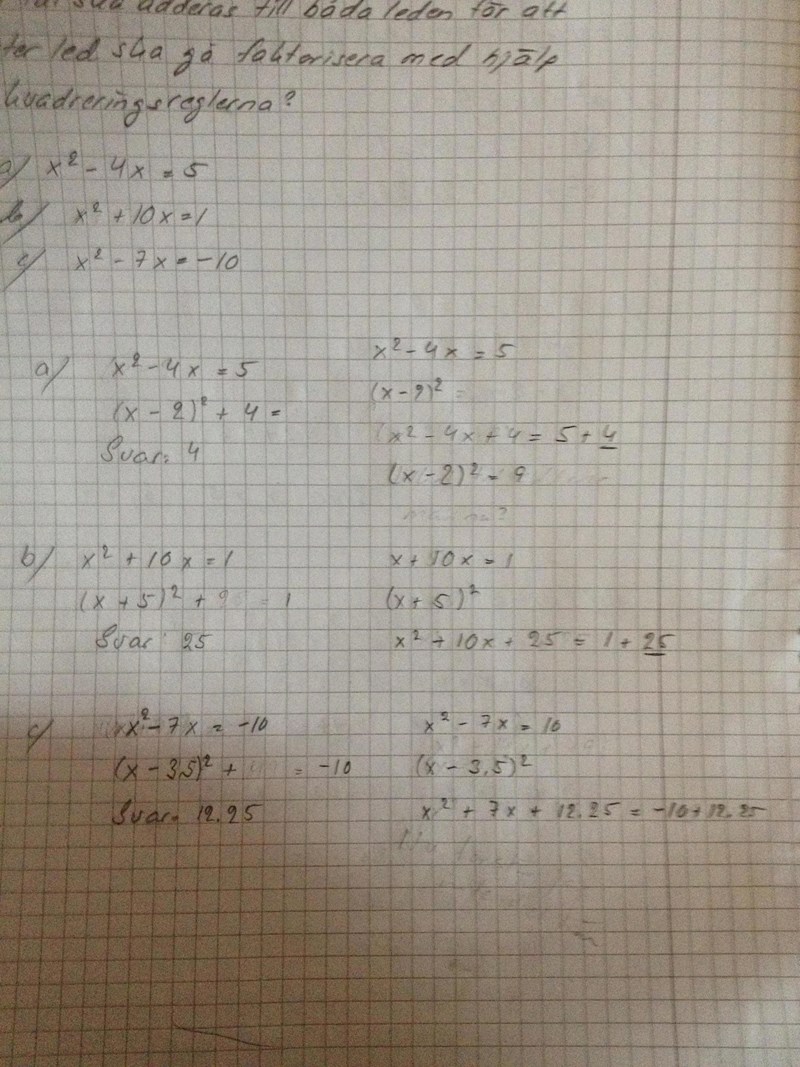 ska adderas till båda leden för att
led ska gå faktorisera med hjälp
kvadreringsreglerna?
a) x² - 4x = 5
b) x² + 10x = 1
c) x² - 7x = -10
a) x² - 4x = 5
(x - 2)² + 4 =
Svar: 4
x² - 4x = 5
(x - 2)² =
(x² - 4x + 4 = 5 + 4
(x - 2)² = 9
b) x² + 10x = 1
(x + 5)² + = 1
Svar: 25
x + 10x = 1
(x + 5)²
x² + 10x + 25 = 1 + 25
c) x² - 7x = -10
(x - 3,5)² + = -10
Svar: 12.25
x² - 7x = 10
(x - 3,5)²
x² + 7x + 12.25 = -10 + 12.25